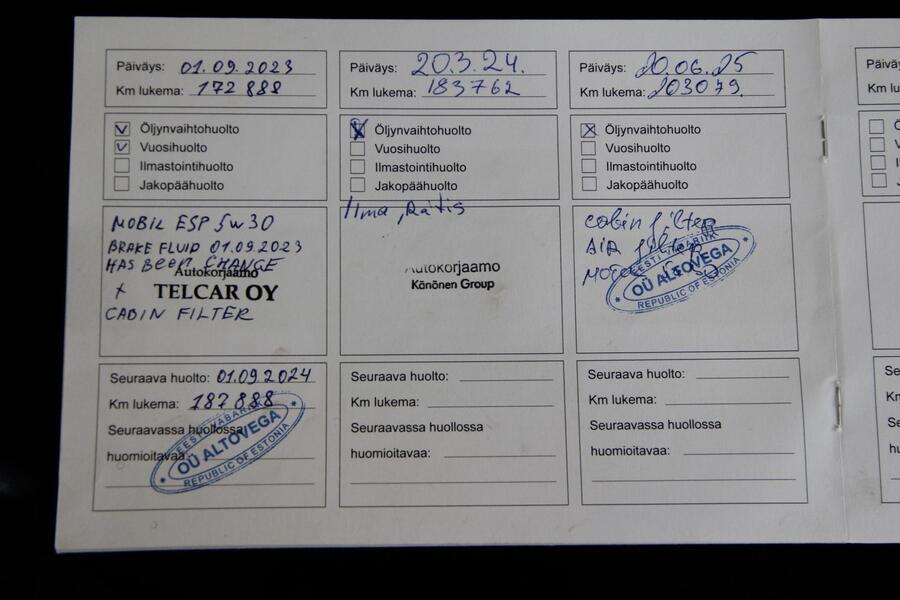 Päiväys: 01.09.2023
Km lukema: 172 888
Öljynvaihtohuolto
Vuosihuolto
Ilmastointihuolto
Jakopäähuolto
MOBIL ESP 5w30
BRAKE FLUID 01.09.2023
HAS BEEN CHANGE
Autokorjaamo
+
TELCAR OY
CABIN FILTER
Seuraava huolto: 01.09.2024
Km lukema: 187 888
Seuraavassa huollossa
huomioitavaa:
EESTI VABARIIK
OÜ ALTOVEGA
REPUBLIC OF ESTONIA
Päiväys: 20.3.24.
Km lukema: 183762
Öljynvaihtohuolto
Vuosihuolto
Ilmastointihuolto
Jakopäähuolto
Ilma,
Autokorjaamo
Könönen Group
Seuraava huolto:
Km lukema:
Seuraavassa huollossa
huomioitavaa:
Päiväys: 20.06.25
Km lukema: 203079.
Öljynvaihtohuolto
Vuosihuolto
Ilmastointihuolto
Jakopäähuolto
cabin filter
AIR filter
EESTI VABARIIK
OÜ ALTOVEGA
REPUBLIC OF ESTONIA
Seuraava huolto:
Km lukema:
Seuraavassa huollossa
huomioitavaa:
Päiväy
Km lu